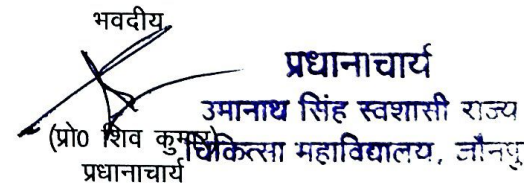 भवदीय
(प्रो0 शिव कुमार)
प्रधानाचार्य
प्रधानाचार्य
उमानाथ सिंह स्वशासी राज्य
चिकित्सा महाविद्यालय, जौनपु